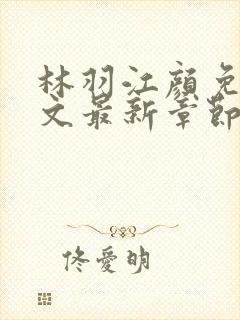 林羽江顏免
文最新章節
佟愛明